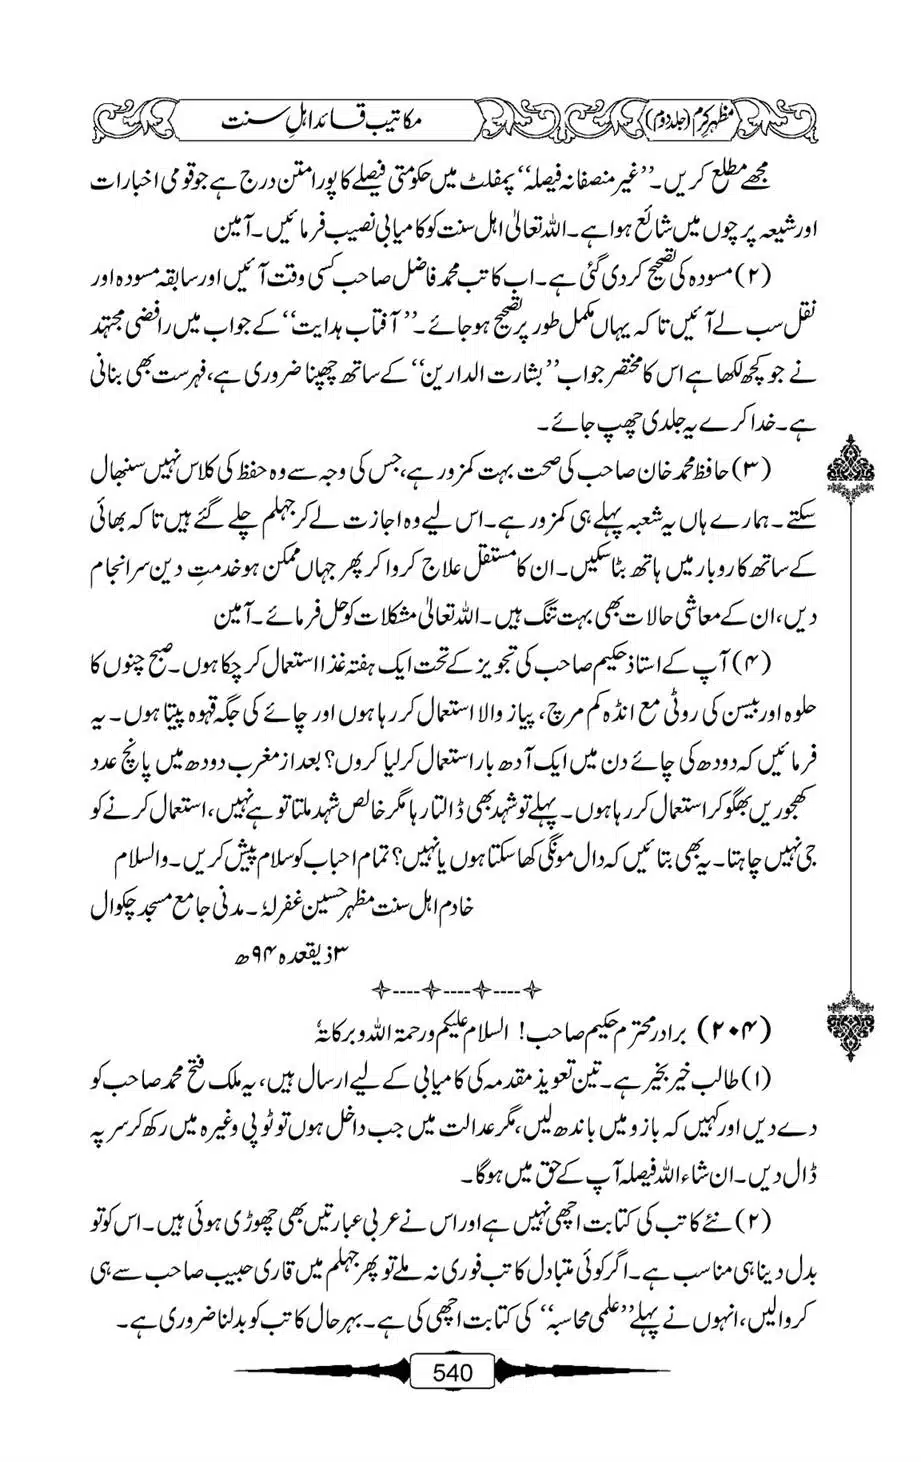 مظہرِ کرم (جلد دوم)
مکاتیب قائد اہل سنت
مجھے مطلع کریں۔ ”غیر منصفانہ فیصلہ“ پمفلٹ میں حکومتی فیصلے کا پورا متن درج ہے جو قومی اخبارات
اور شیعہ پرچوں میں شائع ہوا ہے۔ اللہ تعالیٰ اہل سنت کو کامیابی نصیب فرمائیں۔ آمین
(۲) مسودہ کی تصحیح کر دی گئی ہے۔ اب کاتب محمد فاضل صاحب کسی وقت آئیں اور سابقہ مسودہ اور
نقل سب لے آئیں تا کہ یہاں مکمل طور پر تصحیح ہو جائے۔ ”آفتاب ہدایت“ کے جواب میں رافضی مجتہد
نے جو کچھ لکھا ہے اس کا مختصر جواب ”بشارت الدارین“ کے ساتھ چھپنا ضروری ہے، فہرست بھی بنانی
ہے۔ خدا کرے یہ جلدی چھپ جائے۔
(۳) حافظ محمد خان صاحب کی صحت بہت کمزور ہے، جس کی وجہ سے وہ حفظ کی کلاس نہیں سنبھال
سکتے۔ ہمارے ہاں یہ شعبہ پہلے ہی کمزور ہے۔ اس لیے وہ اجازت لے کر جہلم چلے گئے ہیں تا کہ بھائی
کے ساتھ کاروبار میں ہاتھ بٹا سکیں۔ ان کا مستقل علاج کروا کر پھر جہاں ممکن ہو خدمتِ دین سرانجام
دیں، ان کے معاشی حالات بھی بہت تنگ ہیں۔ اللہ تعالیٰ مشکلات کو حل فرمائے۔ آمین
(۴) آپ کے استاذ حکیم صاحب کی تجویز کے تحت ایک ہفتہ غذا استعمال کر چکا ہوں۔ صبح چنوں کا
حلوہ اور بیسن کی روٹی مع انڈہ کم مرچ، پیاز والا استعمال کر رہا ہوں اور چائے کی جگہ قہوہ پیتا ہوں۔ یہ
فرمائیں کہ دودھ کی چائے دن میں ایک آدھ بار استعمال کر لیا کروں؟ بعد از مغرب دودھ میں پانچ عدد
کھجوریں بھگو کر استعمال کر رہا ہوں۔ پہلے تو شہد بھی ڈالتا رہا مگر خالص شہد ملتا تو ہے نہیں، استعمال کرنے کو
جی نہیں چاہتا۔ یہ بھی بتائیں کہ دال مونگی کھا سکتا ہوں یا نہیں؟ تمام احباب کو سلام پیش کریں۔ والسلام
خادم اہل سنت مظہر حسین غفرلہٗ۔ مدنی جامع مسجد چکوال
۳ ذیقعدہ ۹۴ھ
(۲۰۴) برادر محترم حکیم صاحب! السلام علیکم ورحمۃ اللہ وبرکاتہٗ
(۱) طالب خیر بخیر ہے۔ تین تعویذ مقدمہ کی کامیابی کے لیے ارسال ہیں، یہ ملک فتح محمد صاحب کو
دے دیں اور کہیں کہ بازو میں باندھ لیں، مگر عدالت میں جب داخل ہوں تو ٹوپی وغیرہ میں رکھ کر سر پہ
ڈال دیں۔ ان شاء اللہ فیصلہ آپ کے حق میں ہوگا۔
(۲) نئے کاتب کی کتابت اچھی نہیں ہے اور اس نے عربی عبارتیں بھی چھوڑی ہوئی ہیں۔ اس کو تو
بدل دینا ہی مناسب ہے۔ اگر کوئی متبادل کاتب فوری نہ ملے تو پھر جہلم میں قاری حبیب صاحب سے ہی
کروالیں، انہوں نے پہلے ”علمی محاسبہ“ کی کتابت اچھی کی ہے۔ بہرحال کاتب کو بدلنا ضروری ہے۔
540